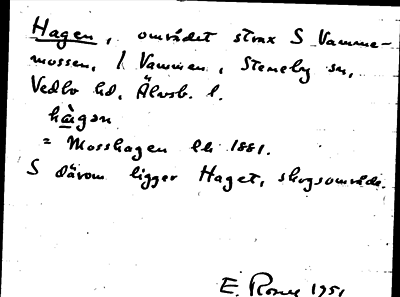 Hagen, området strax S Vamme-
mossen, l. Vammen, Steneby sn,
Vedbo hd, Älvsb. l.
hàgən
= Mosshagen lk 1881.
S därom ligger Haget, skogsområde.
E. 1951